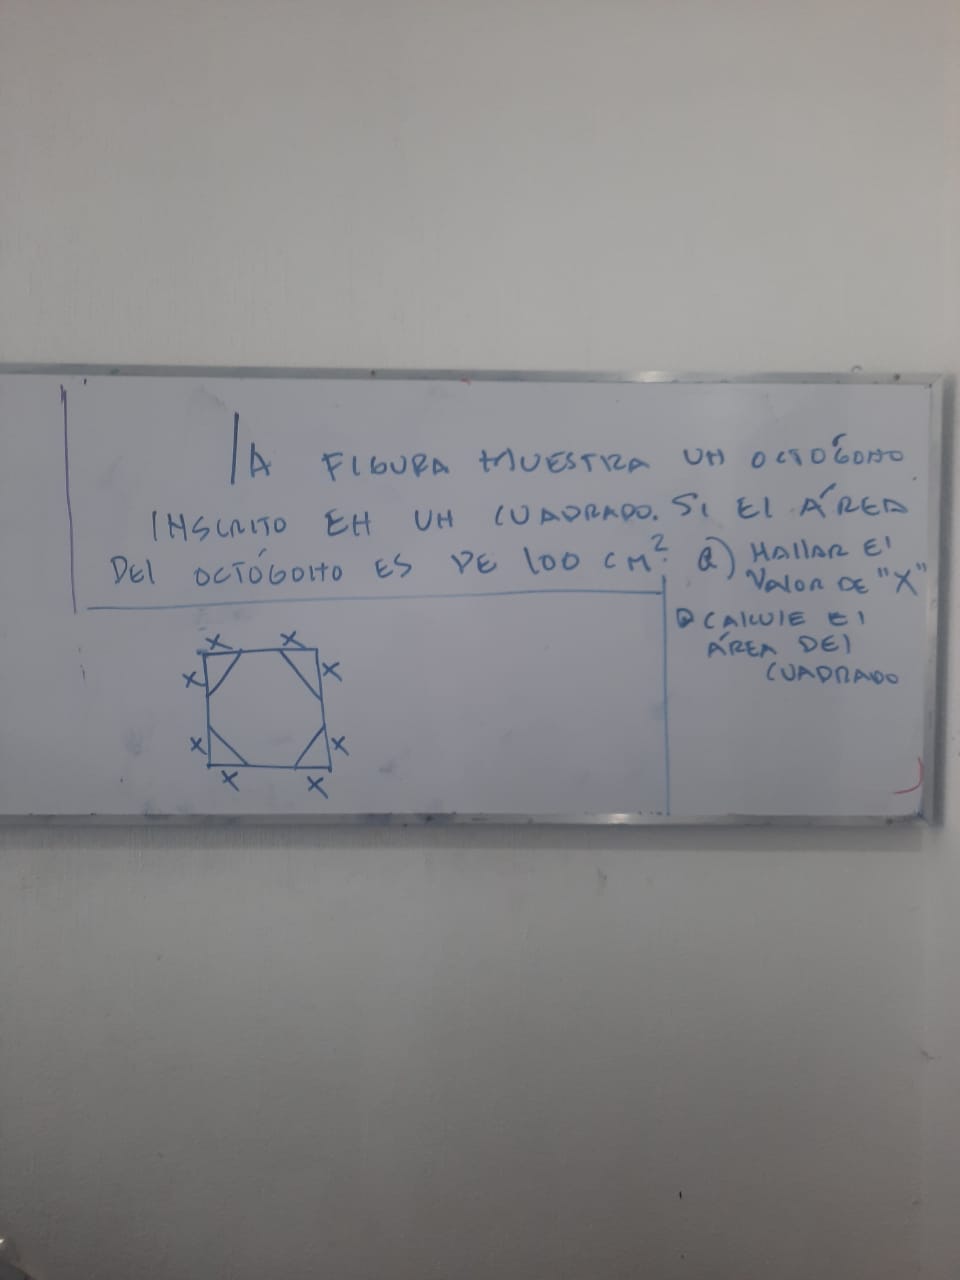 LA FIGURA MUESTRA UN OCTÓGONO
INSCRITO EN UN CUADRADO. SI EL ÁREA
DEL OCTÓGONO ES DE 100 CM².
a) HALLAR EL
VALOR DE "X"
b CALCULE EL
ÁREA DEL
CUADRADO
X X
X X
X X
X X